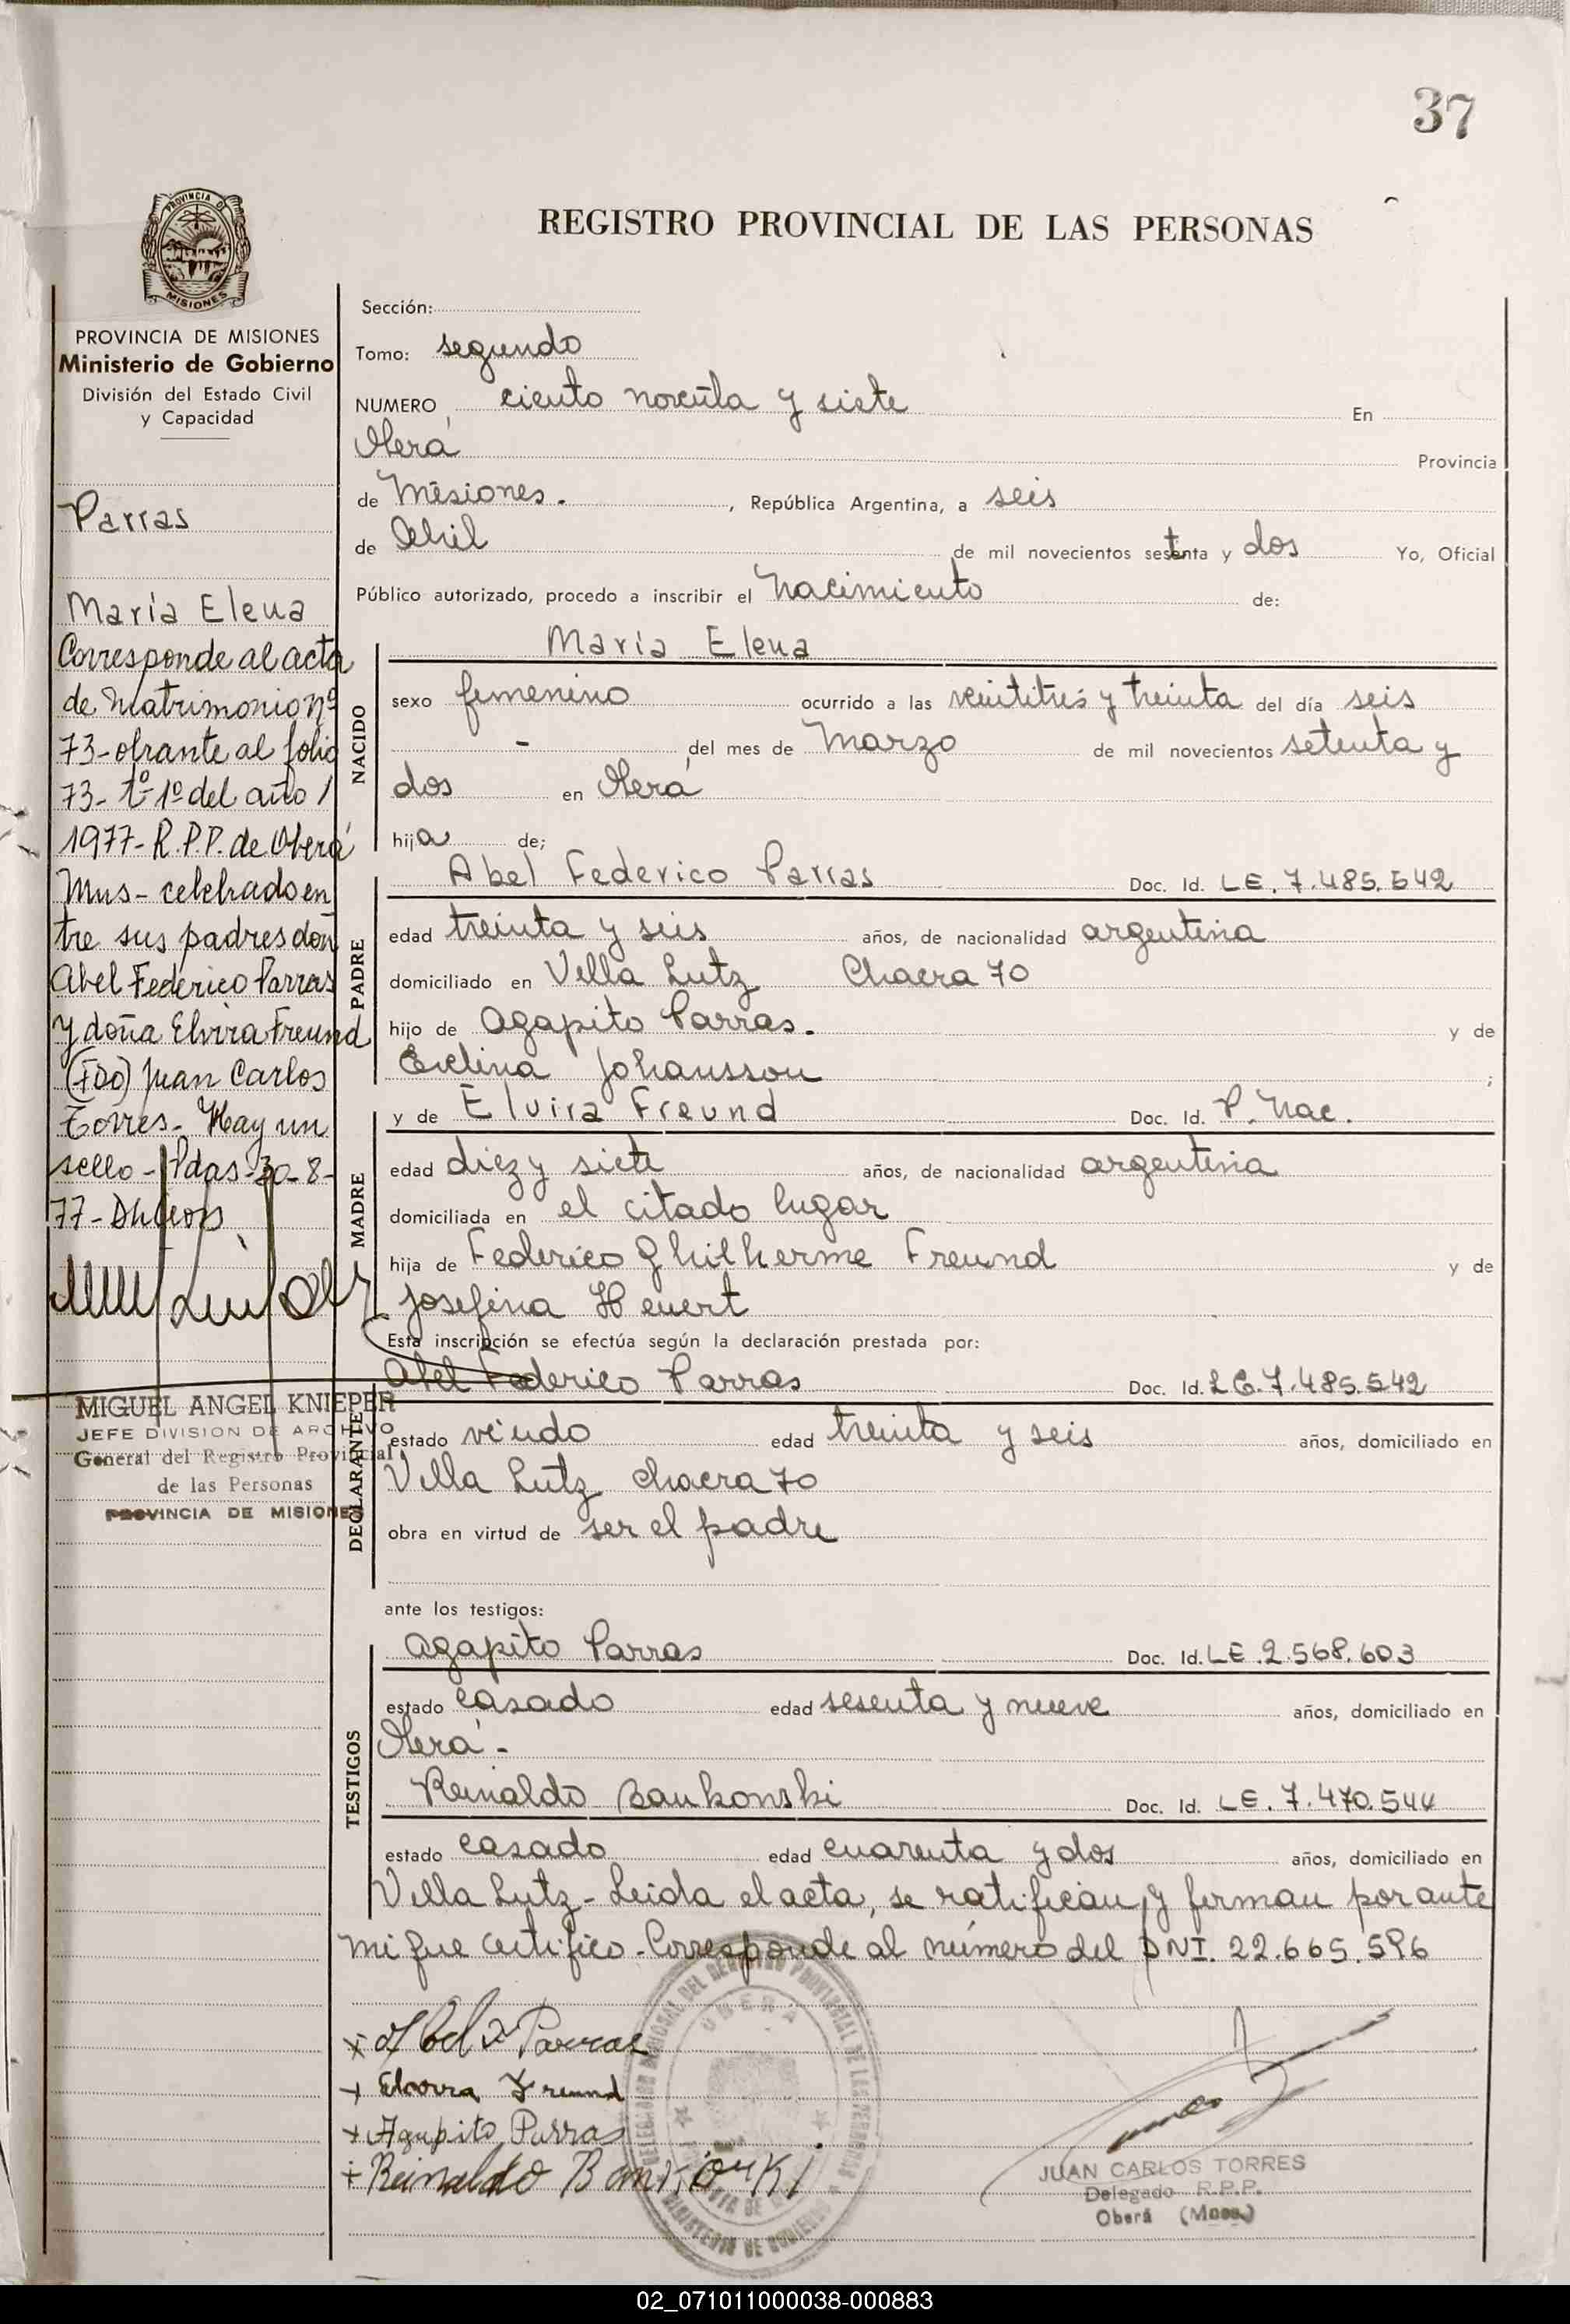 37
REGISTRO PROVINCIAL DE LAS PERSONAS
PROVINCIA DE MISIONES
Ministerio de Gobierno
División del Estado Civil
y Capacidad
Parras
María Elena
Corresponde al acta
de Matrimonio nº
73- obrante al folio
73- tº 1º del año /
1977- R.P.P. de Oberá
Mns- celebrado en
tre sus padres don
Abel Federico Parras
y doña Elvira Freund
(FDO) Juan Carlos
Torres- Hay un
sello- Pdas-30-8-
77-
MIGUEL ANGEL KNIEPER
JEFE DIVISION DE ARCHIVO
General del Registro Provincial
de las Personas
PROVINCIA DE MISIONES
Sección:
Tomo: segundo
NUMERO ciento noventa y siete En
Oberá Provincia
de Misiones. , República Argentina, a seis
de Abril de mil novecientos setenta y dos Yo, Oficial
Público autorizado, procedo a inscribir el Nacimiento de:
NACIDO
María Elena
sexo femenino ocurrido a las veintitrés y treinta del día seis
- del mes de Marzo de mil novecientos setenta y
dos en Oberá
hija de;
PADRE
Abel Federico Parras Doc. Id. LE. 7.485.542
edad treinta y seis años, de nacionalidad argentina
domiciliado en Villa Lutz Chacra 70
hijo de Agapito Parras. y de
Evelina Johansson ;
MADRE
y de Elvira Freund Doc. Id. P. Nac.
edad diez y siete años, de nacionalidad argentina
domiciliada en el citado lugar
hija de Federico Ghilherme Freund y de
Josefina Hevert
Esta inscripción se efectúa según la declaración prestada por:
DECLARANTE
Abel Federico Parras Doc. Id. LE.7.485.542
estado viudo edad treinta y seis años, domiciliado en
Villa Lutz chacra 70
obra en virtud de ser el padre
ante los testigos:
TESTIGOS
Agapito Parras Doc. Id. LE.2.568.603
estado casado edad sesenta y nueve años, domiciliado en
Oberá-
Reinaldo Bankonski Doc. Id. LE. 7.470.544
estado casado edad cuarenta y dos años, domiciliado en
Villa Lutz- Leida el acta, se ratifican y firman por ante
mi que certifico- Corresponde al número del DNI. 22.665.596
+ Abel F Parras
+ Elvira Freund
+ Agapito Parras
+ Reinaldo
JUAN CARLOS TORRES
Delegado R.P.P.
Oberá (Mnes.)
02_071011000038-000883